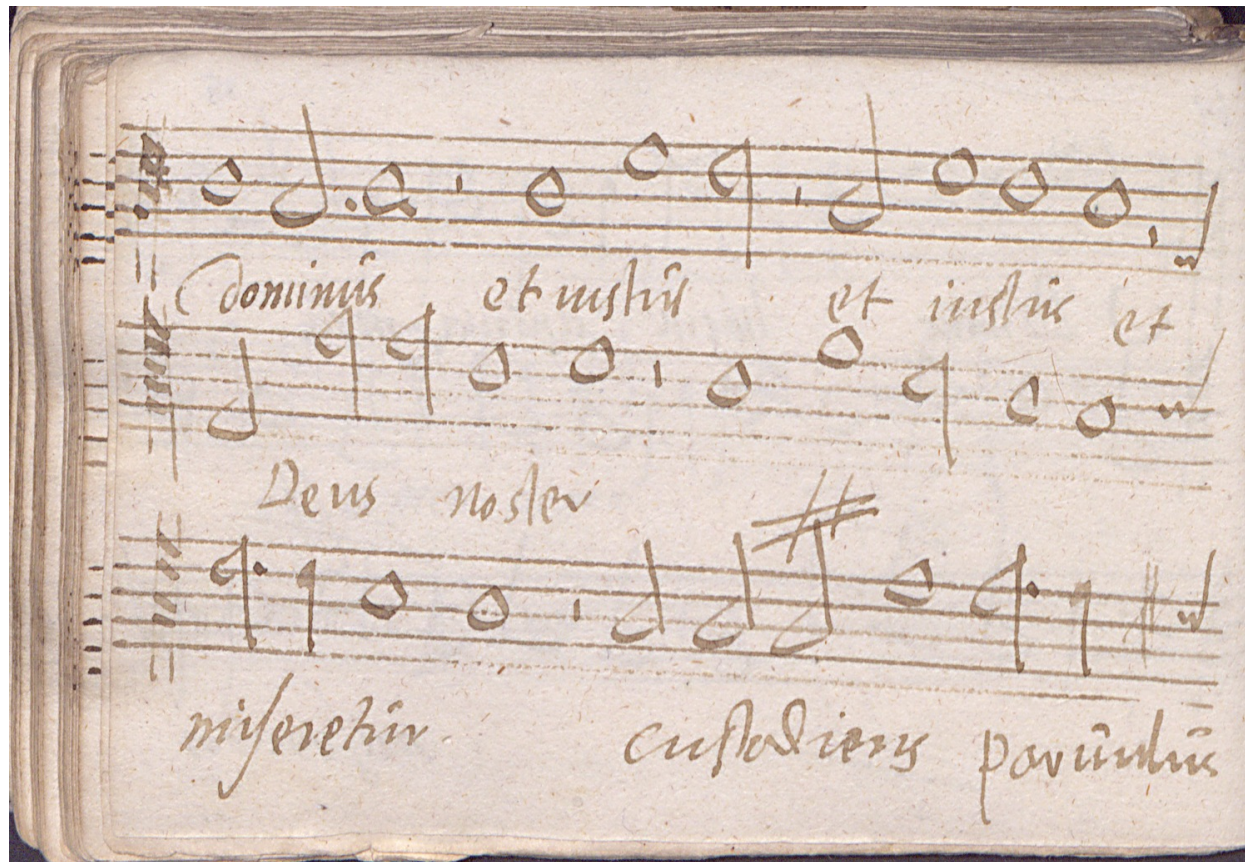 dominus et iustus et iustus et
Deus noster
miseretur custodiens parvulus